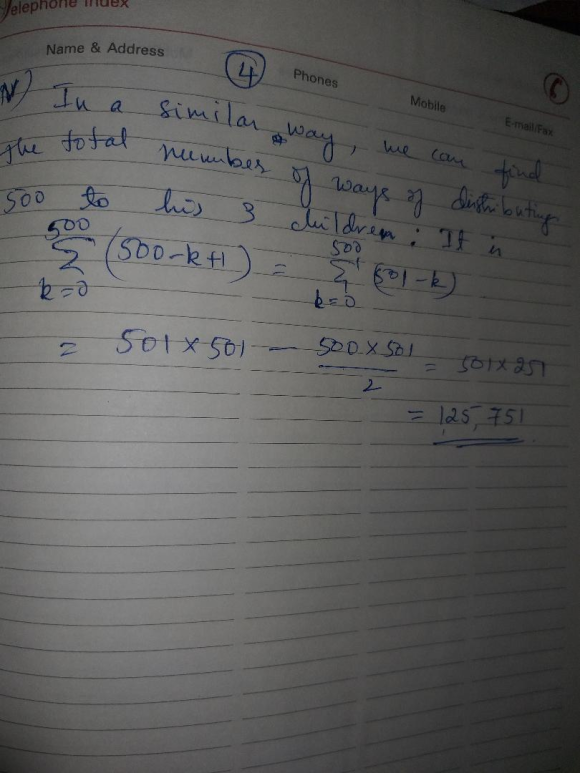 Telephone Index
Name & Address
4
Phones
Mobile
E-mail/Fax
IV) In a similar way, we can find
the total number of ways of distributing
500 to his 3 children: It is
500 ∑ k=0 (500-k+1) = 500 ∑ k=0 (501-k)
= 501×501 - 500×501/2 = 501×251
= 125,751